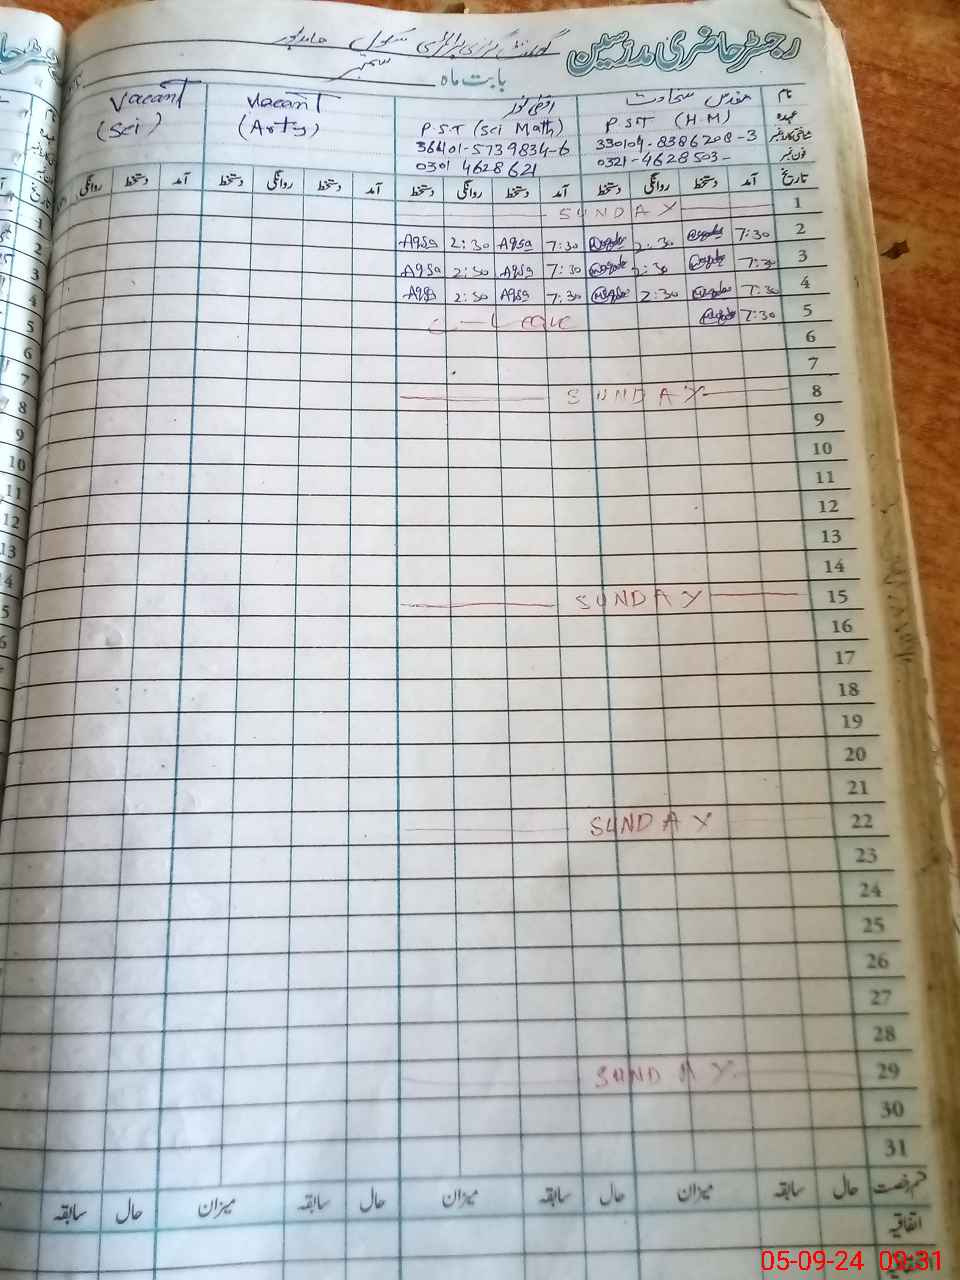 رجسٹر حاضری مدرسین
گورنمنٹ گرلز پرائمری سکول حامد پور
بابت ماہ ستمبر
نام
مقدس سخاوت
اقصیٰ نور
Vacant
Vacant
عہدہ
PST (H.M)
P.S.T (Sci Math)
(Arts)
(Sci)
شناختی کارڈ نمبر
330104-8386208-3
36401-5739834-6
فون نمبر
0321-4628503-
0301 4628621
تاریخ آمد دستخط روانگی دستخط آمد دستخط روانگی دستخط آمد دستخط روانگی دستخط آمد دستخط روانگی
1 SUNDAY
2 7:30 2:30 7:30 Aqsa 2:30 Aqsa
3 7:30 2:30 7:30 Aqsa 2:30 Aqsa
4 7:30 2:30 7:30 Aqsa 2:30 Aqsa
5 7:30
6
7
8 SUNDAY
9
10
11
12
13
14
15 SUNDAY
16
17
18
19
20
21
22 SUNDAY
23
24
25
26
27
28
29 SUNDAY
30
31
قسم رخصت حال سابقہ میزان حال سابقہ میزان حال سابقہ میزان حال سابقہ
اتفاقیہ
05-09-24 09:31